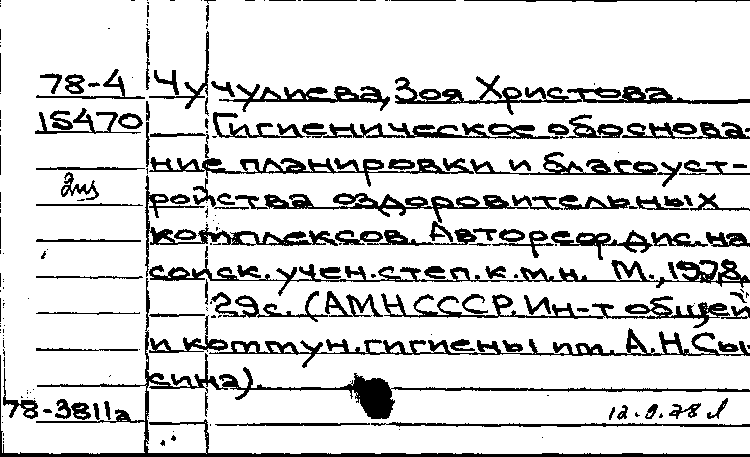 78-4 Чучулиева, Зоя Христова.
15470 Гигиеническое обоснова-
ние планировки и благоуст-
2из
ройства оздоровительных
комплексов. Автореф. дис. на
соиск. учен. степ. к.м.н. М., 1978.
29с. (АМН СССР. Ин-т общей
и коммун. гигиены им. А.Н. Сы-
сина).
78-3811а